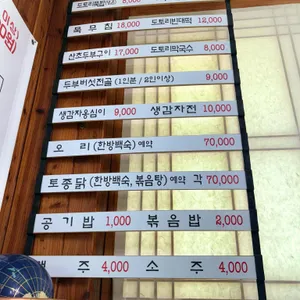 묵무침 18,000 도토리빈대떡 12,000
산초두부구이 17,000 도토리막국수 8,000
두부버섯전골 (1인분 / 2인이상) 9,000
생감자옹심이 9,000 생감자전 10,000
오리 (한방백숙) 예약 70,000
토종닭 (한방백숙, 볶음탕) 예약 각 70,000
공기밥 1,000 볶음밥 2,000
맥주 4,000 소주 4,000